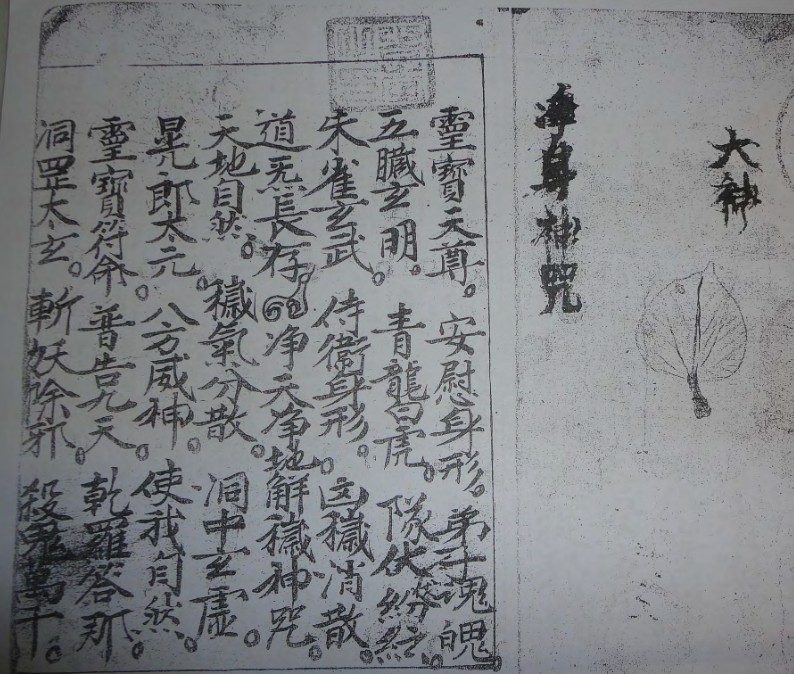 大神
净身神咒
靈寶天尊。安慰身形。弟子魂魄。
五臟玄明。青龍白虎。隊伏紛紜。
朱雀玄武。侍衛身形。凶穢消散。
道炁長存。净天净地解穢神咒。
天地自然。穢氣分散。洞中玄虛。
晃郎太元。八方威神。使我自然。
靈寶符命。普告九天。乾羅答那。
洞罡太玄。斬妖除邪。殺鬼萬千。